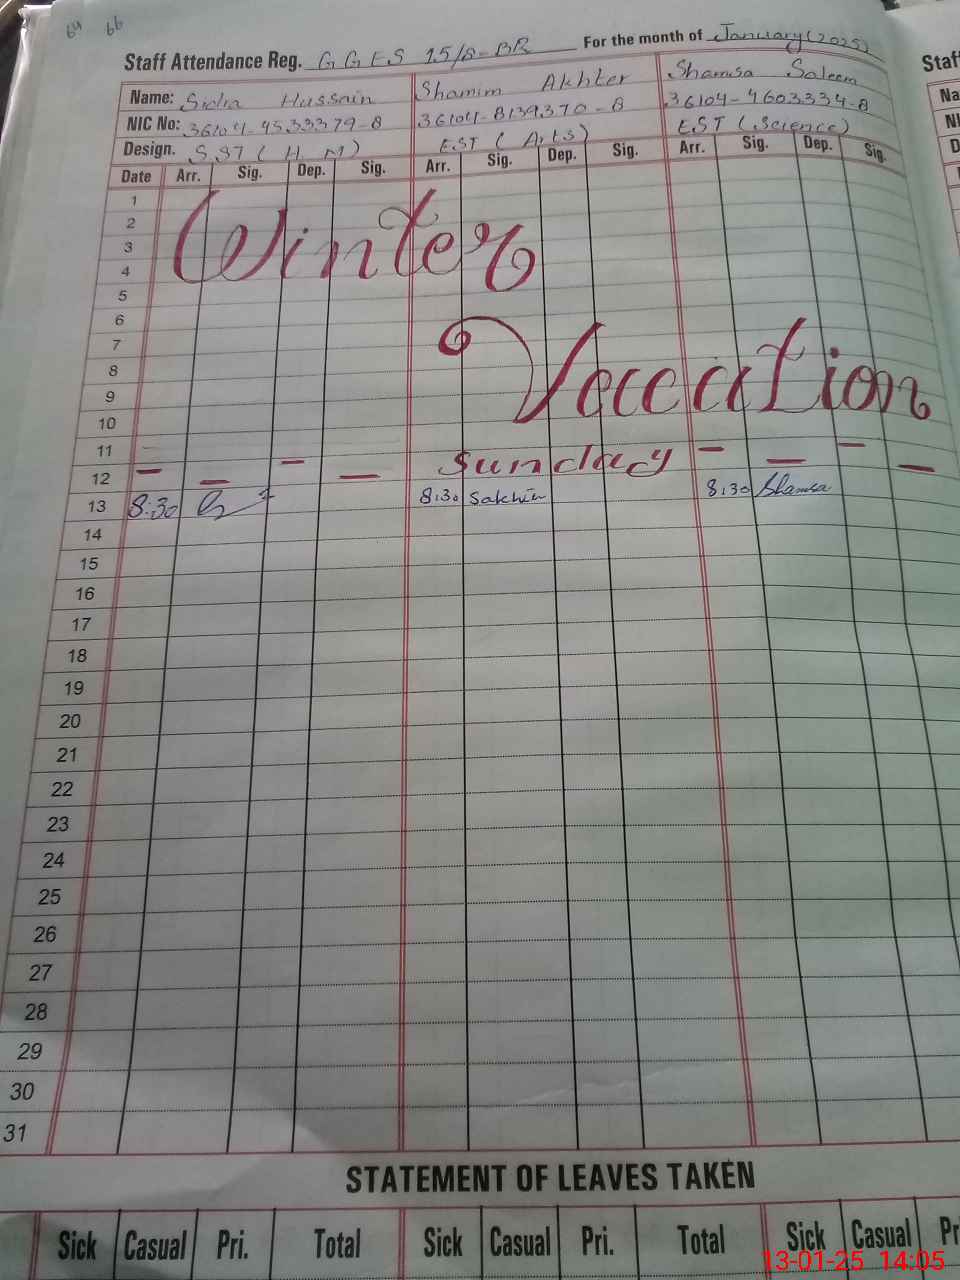 64 66
Staff Attendance Reg. GGES 15/8-BR For the month of January (2025)
Name: Sidra Hussain Shamim Akhter Shamsa Saleem
NIC No: 36104-4533379-8 36104-8139370-8 36104-4603334-8
Design. SST (H M) EST (Arts) EST (Science)
Date Arr. Sig. Dep. Sig. Arr. Sig. Dep. Sig. Arr. Sig. Dep. Sig.
1
2
3
4
Winter
5
6
7
8
9
Vacation
10
11
12 – – – – Sunday – – – –
13 8:30 8:30 8:30 Shamsa
14
15
16
17
18
19
20
21
22
23
24
25
26
27
28
29
30
31
STATEMENT OF LEAVES TAKEN
Sick Casual Pri. Total Sick Casual Pri. Total Sick Casual Pr
Staf
Na
NI
D
13-01-25 14:05